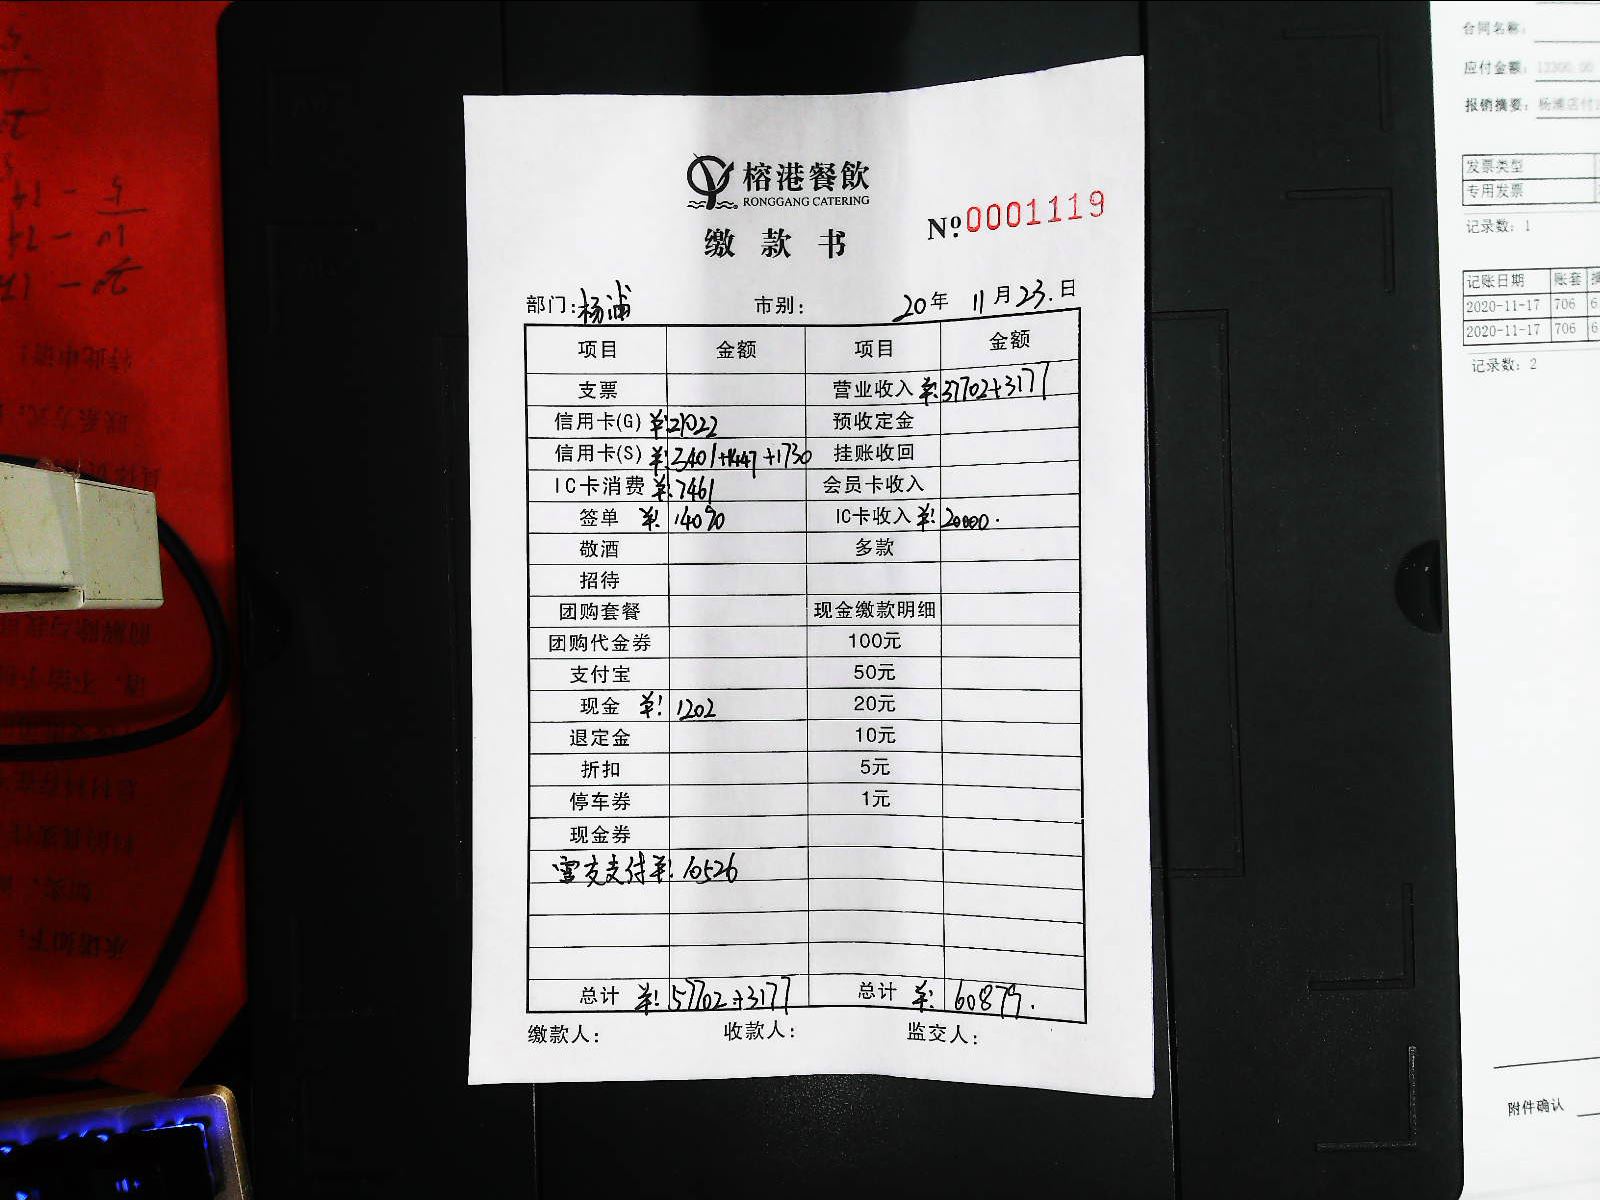 榕港餐飲
RONGGANG CATERING
缴款书
Nº 0001119
部门: 杨浦 市别: 20年 11月23.日
项目 金额 项目 金额
支票 营业收入 ¥:37702+3177
信用卡(G) ¥:21022 预收定金
信用卡(S) ¥:3401+1447+1730 挂账收回
IC卡消费 ¥:7461 会员卡收入
签单 ¥: 14090 IC卡收入 ¥: 20000.
敬酒 多款
招待
团购套餐 现金缴款明细
团购代金券 100元
支付宝 50元
现金 ¥: 1202 20元
退定金 10元
折扣 5元
停车券 1元
现金券
雪支支付 ¥: 10526
总计 ¥: 57702+3177 总计 ¥: 60879.
缴款人: 收款人: 监交人:
合同名称:
应付金额:
报销摘要: 杨浦店付
发票类型
专用发票
记录数: 1
记账日期 账套
2020-11-17 706 6
2020-11-17 706 6
记录数: 2
附件确认
特此申请!
联系方式:
承诺如下: